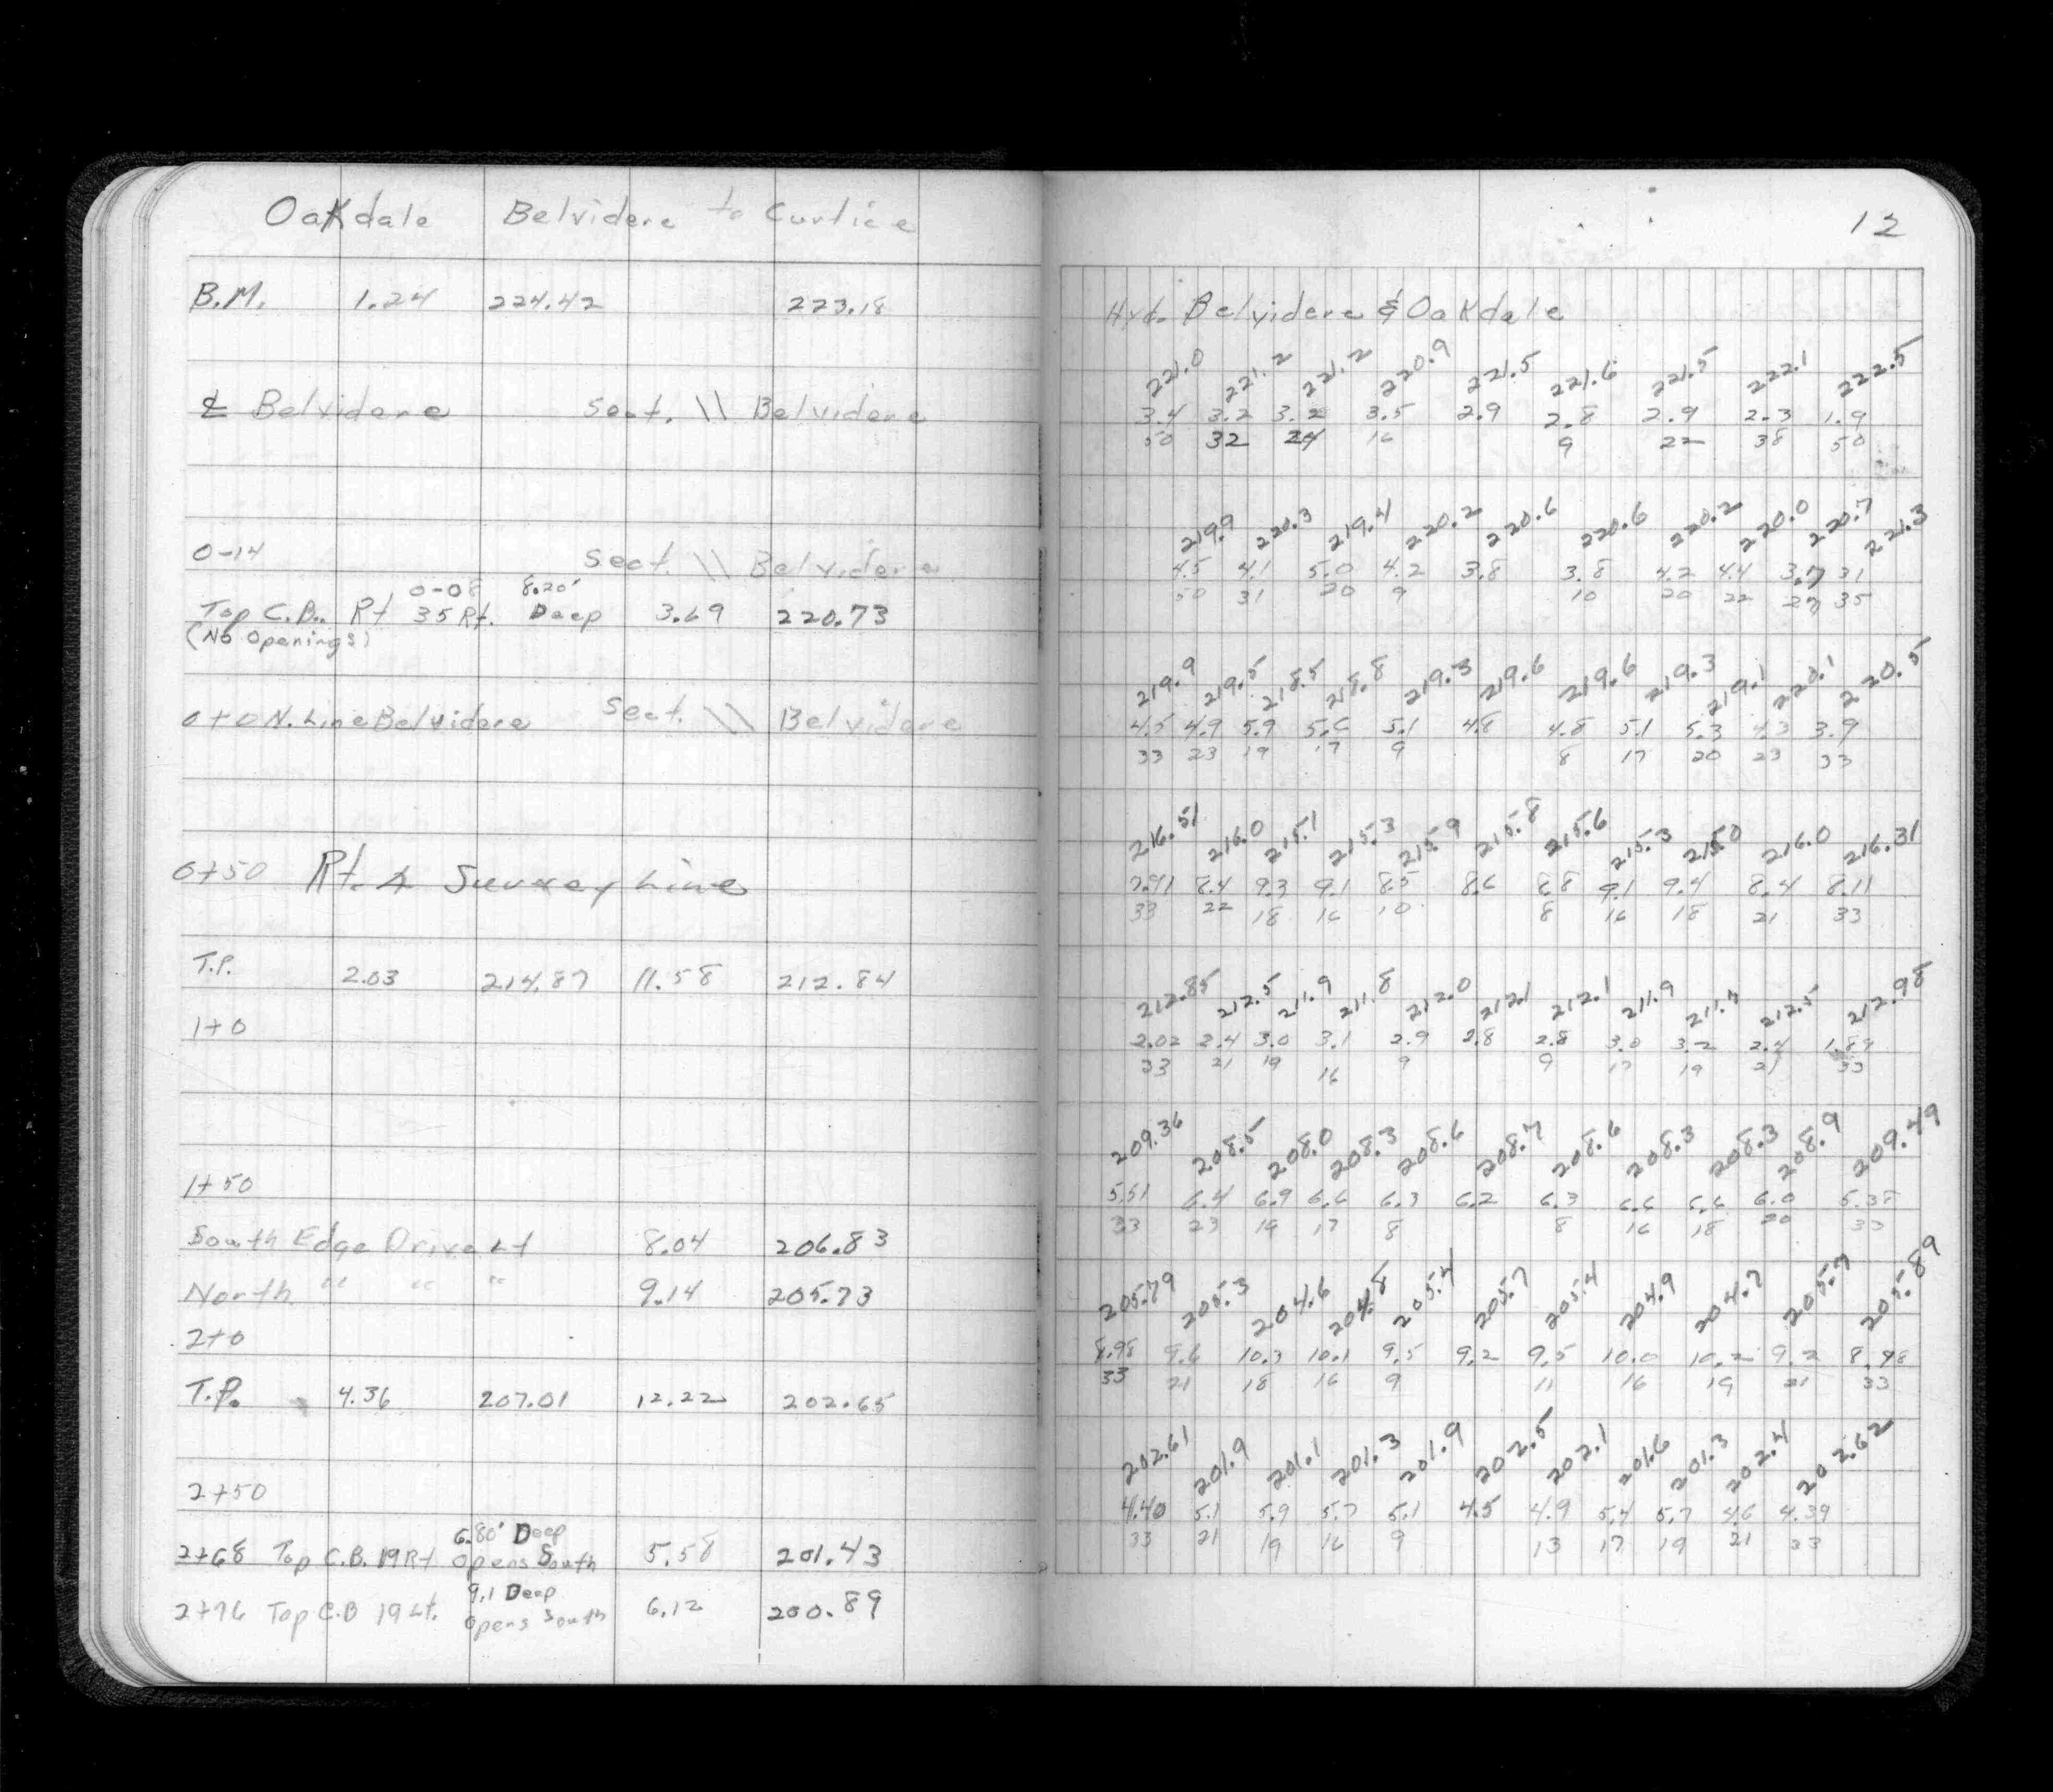 Oakdale Belvidere to Curtice
B.M. 1.24 224.42 223.18
℄ Belvidere Sect. \\ Belvidere
0-14 Sect. \\ Belvidere
0-08 8.20'
Top C.B. Rt 35 Rt. Deep 3.69 220.73
(No Openings)
0+0 N. Line Belvidere Sect. \\ Belvidere
0+50 Rt. ∡ Survey Line
T.P. 2.03 214.87 11.58 212.84
1+0
1+50
South Edge Drive Lt 8.04 206.83
North " " " 9.14 205.73
2+0
T.P. 4.36 207.01 12.22 202.65
2+50
6.80' Deep
2+68 Top C.B. 19 Rt Opens South 5.58 201.43
9.1 Deep
2+76 Top C.B 19 Lt. Opens South 6.12 200.89
12
Hyd. Belvidere & Oakdale
221.0 221.2 221.2 220.9 221.5 221.6 221.5 222.1 222.5
3.4 3.2 3.2 3.5 2.9 2.8 2.9 2.3 1.9
50 32 24 16 9 22 38 50
219.9 220.3 219.4 220.2 220.6 220.6 220.2 220.0 220.7 221.3
4.5 4.1 5.0 4.2 3.8 3.8 4.2 4.4 3.7 31
50 31 20 9 10 20 22 27 35
219.9 219.5 218.5 218.8 219.3 219.6 219.6 219.3 219.1 220.1 220.5
4.5 4.9 5.9 5.6 5.1 4.8 4.8 5.1 5.3 4.3 3.9
33 23 19 17 9 8 17 20 23 33
216.51 216.0 215.1 215.3 215.9 215.8 215.6 215.3 215.0 216.0 216.31
7.91 8.4 9.3 9.1 8.5 8.6 8.8 9.1 9.4 8.4 8.11
33 22 18 16 10 8 16 18 21 33
212.85 212.5 211.9 211.8 212.0 212.1 212.1 211.9 211.7 212.5 212.98
2.02 2.4 3.0 3.1 2.9 2.8 2.8 3.0 3.2 2.4 1.89
33 21 19 16 9 9 17 19 21 33
209.36 208.5 208.0 208.3 208.6 208.7 208.6 208.3 208.3 208.9 209.49
5.51 6.4 6.9 6.6 6.3 6.2 6.3 6.6 6.6 6.0 5.38
33 23 19 17 8 8 16 18 20 33
205.79 205.3 204.6 204.8 205.4 205.7 205.4 204.9 204.7 205.7 205.89
8.98 9.6 10.3 10.1 9.5 9.2 9.5 10.0 10.2 9.2 8.98
33 21 18 16 9 11 16 19 21 33
202.61 201.9 201.1 201.3 201.9 202.5 202.1 201.6 201.3 202.4 202.62
4.40 5.1 5.9 5.7 5.1 4.5 4.9 5.4 5.7 4.6 4.39
33 21 19 16 9 13 17 19 21 33